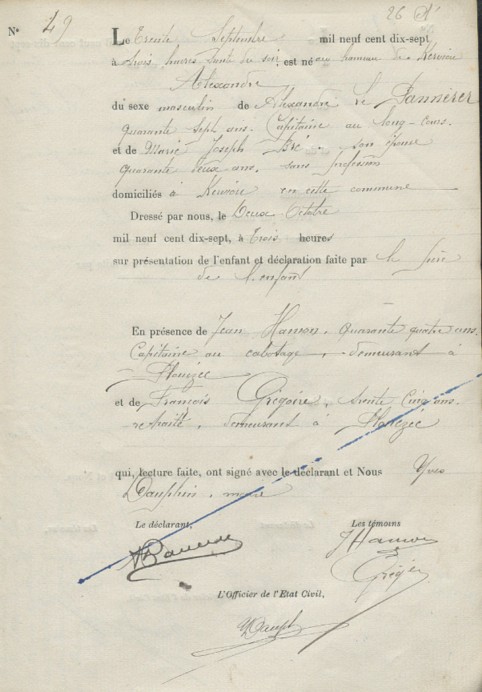 N° 49
26 
Le Trente Septembre mil neuf cent dix-sept
à trois heures du soir, est né au hameau de Kervoie
Alexandre
du sexe masculin de Alexandre Le Pannérer
quarante sept ans. Capitaine au long-cours
et de Marie Joseph son épouse
quarante deux ans. sans profession
domiciliés à en cette commune
Dressé par nous, le Deux Octobre
mil neuf cent dix-sept, à Trois heures
sur présentation de l'enfant et déclaration faite par le père
de l'enfant
En présence de Jean Hamon, quarante quatre ans,
Capitaine au cabotage, demeurant à
Plouézec
et de François Grégoire, trente cinq ans.
retraité, demeurant à Plouézec
qui, lecture faite, ont signé avec le déclarant et Nous Yves
Dauphin, maire
Le déclarant,
Les témoins
JHamon
Grégoire
L'Officier de l'Etat Civil,